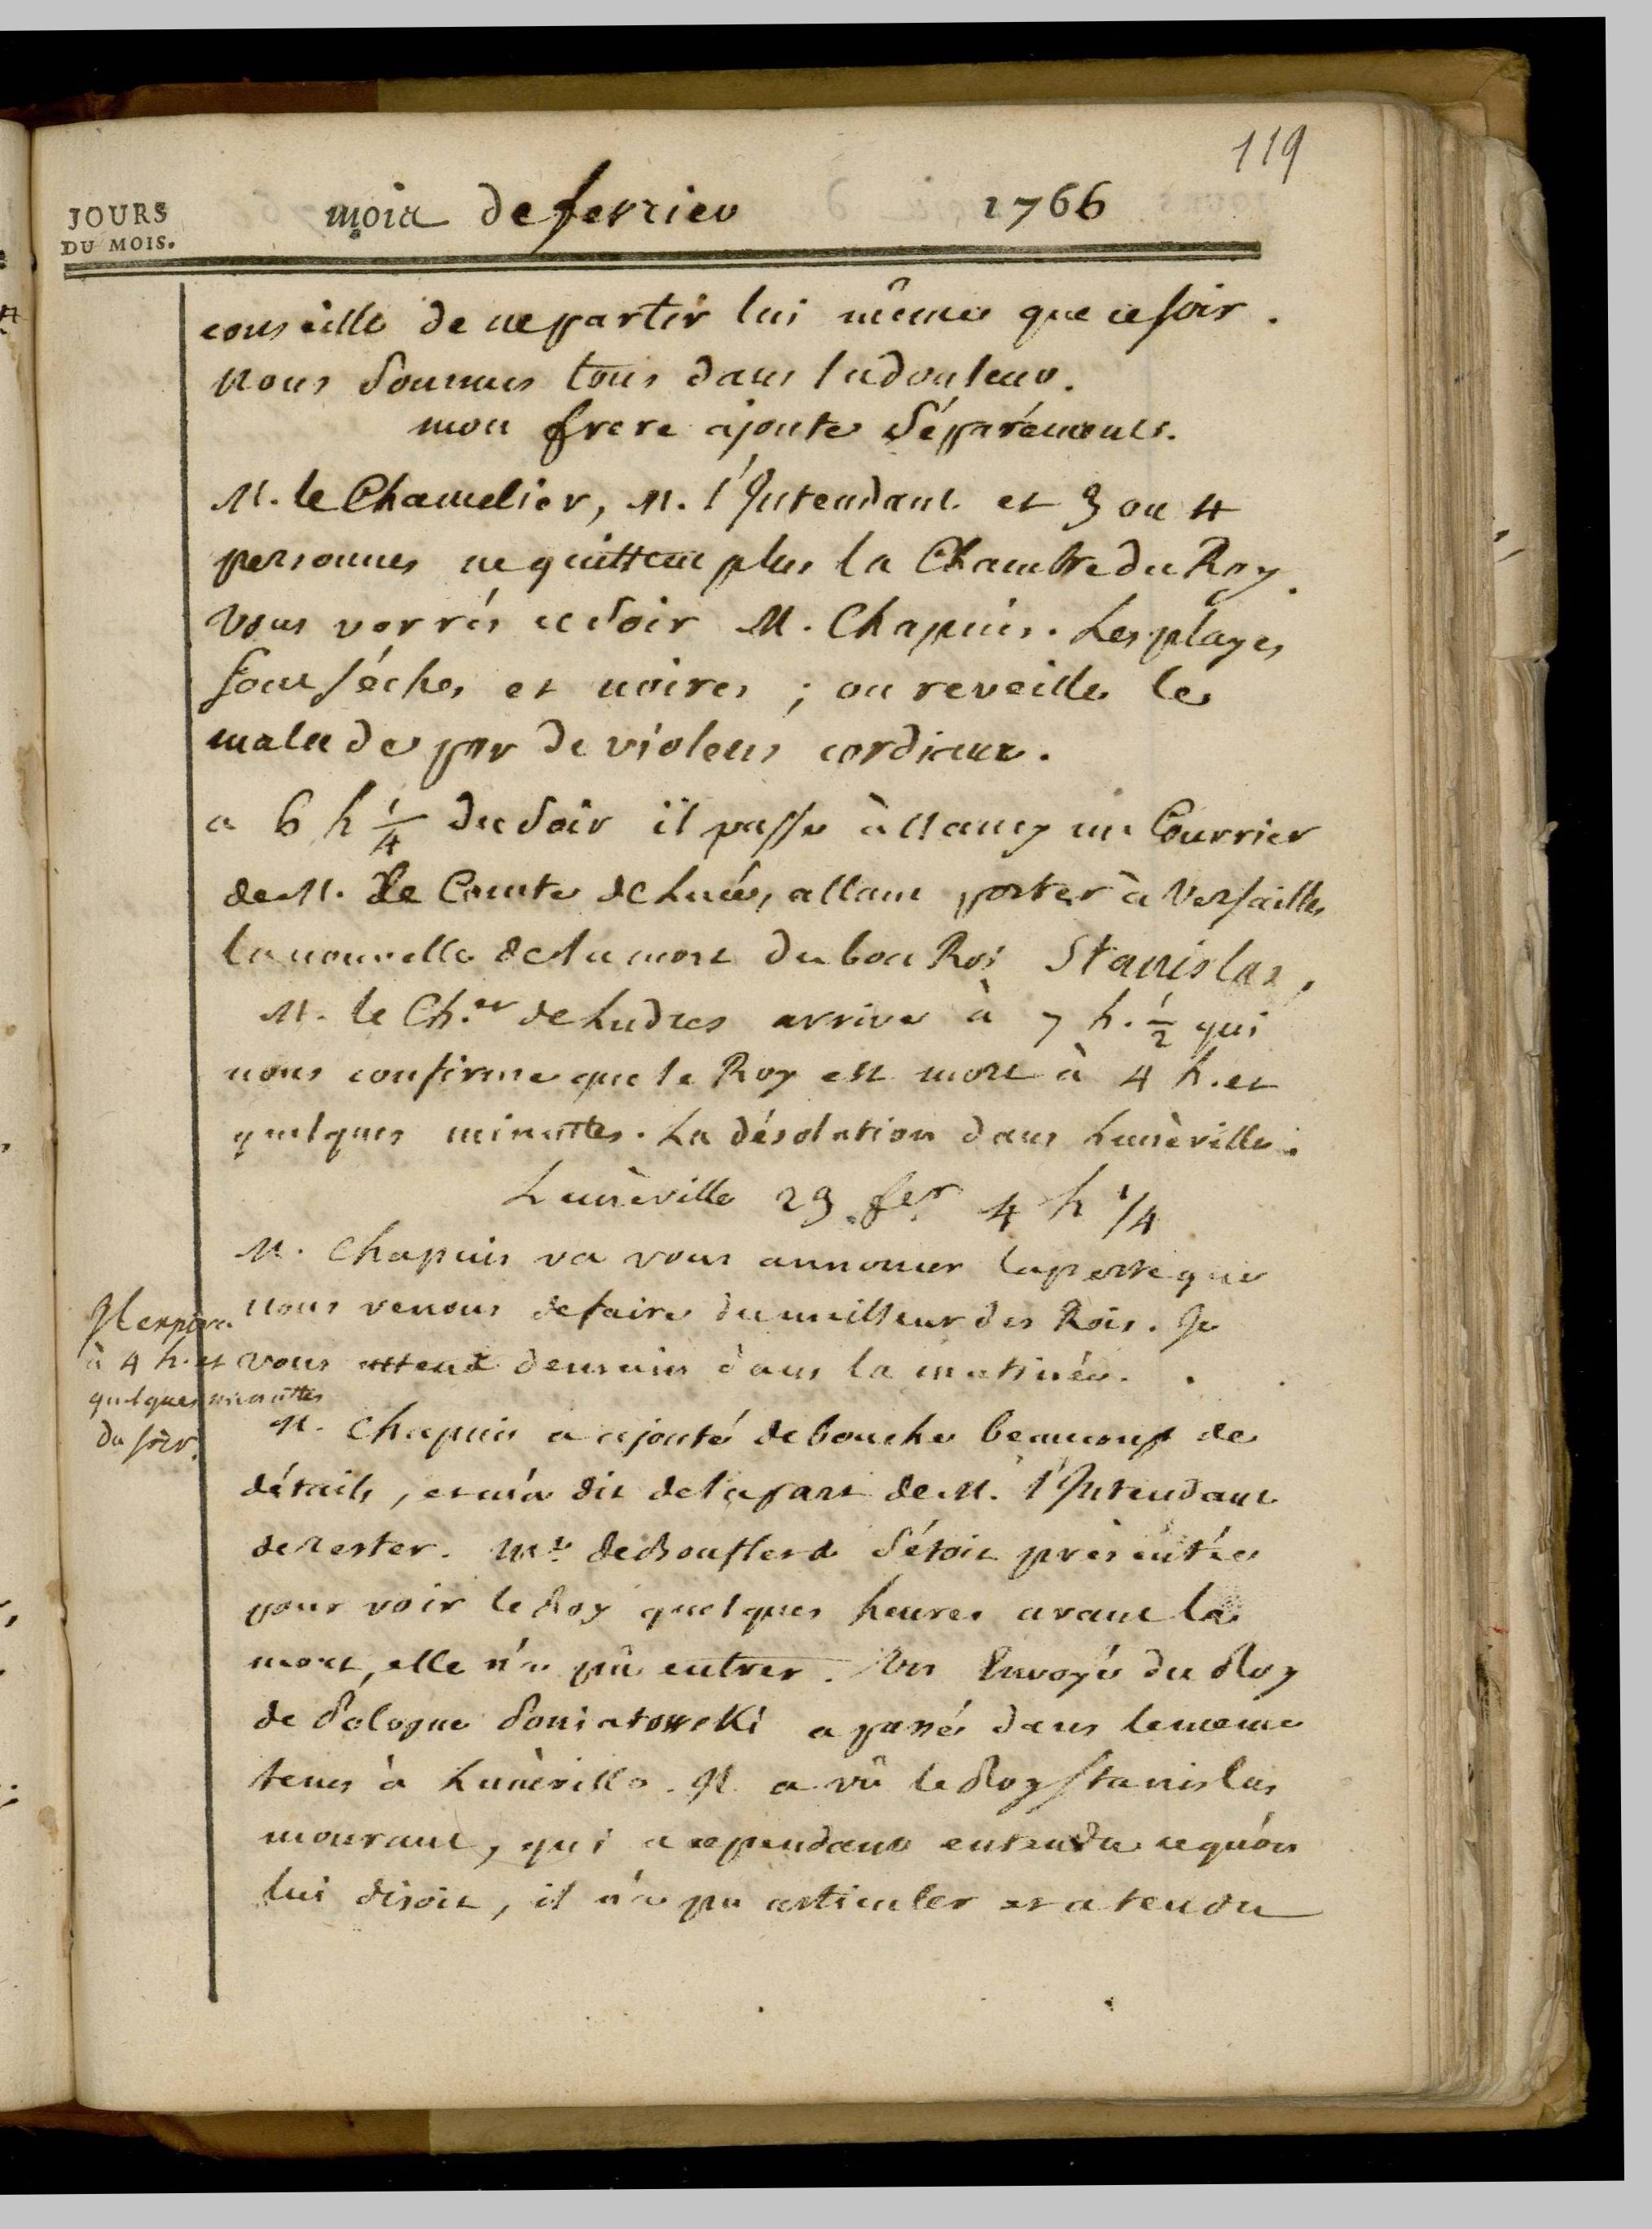 119
JOURS
DU MOIS.
mois de fevrier 1766
conseille de ne partir lui même que ce soir.
nous sommes tous dans la douleur.
mon frere ajoute séparément.
M. le Chancelier, M. l'Intendant et 3 ou 4
personnes ne quittent plus la Chambre du Roy.
vous verrés ce soir M. Chapuis. Les playes
sont séches et noires ; on reveille le
malade par de violens cordiaux.
a 6 h 1/4 du soir il passe à Nancy un Courrier
de M. Le Comte de Lucé, allant porter à Versailles
la nouvelle de la mort du bon Roi Stanislas,
M. le Ch.er de Ludres arrive à 7 h. 1/2 qui
nous confirme que le Roy est mort à 4 h. et
quelques minuttes. La désolation dans Lunèville.
Lunèville 23 fer. 4 h 1/4
M. Chapuis va vous annoncer la perte que
nous venons de faire du meilleur des Rois. Je
vous attend demain dans la matinée.
Il expira
à 4 h. et
quelques minuttes
du soir.
M. Chapuis a ajouté de bouche beaucoup de
détails, et m'a dit de la part de M. l'Intendant
de rester. Me. de Bouflers s'étoit présentée
pour voir le Roy quelques heures avant la
mort, elle n'a pû entrer. Un Envoyé du Roy
de Pologne Poniatowski a passé dans le meme
tems à Lunèville. Il a vû le Roy Stanislas
mourant, qui a cependant entendu ce qu'on
lui disoit, il n'a pu articuler et a tendu